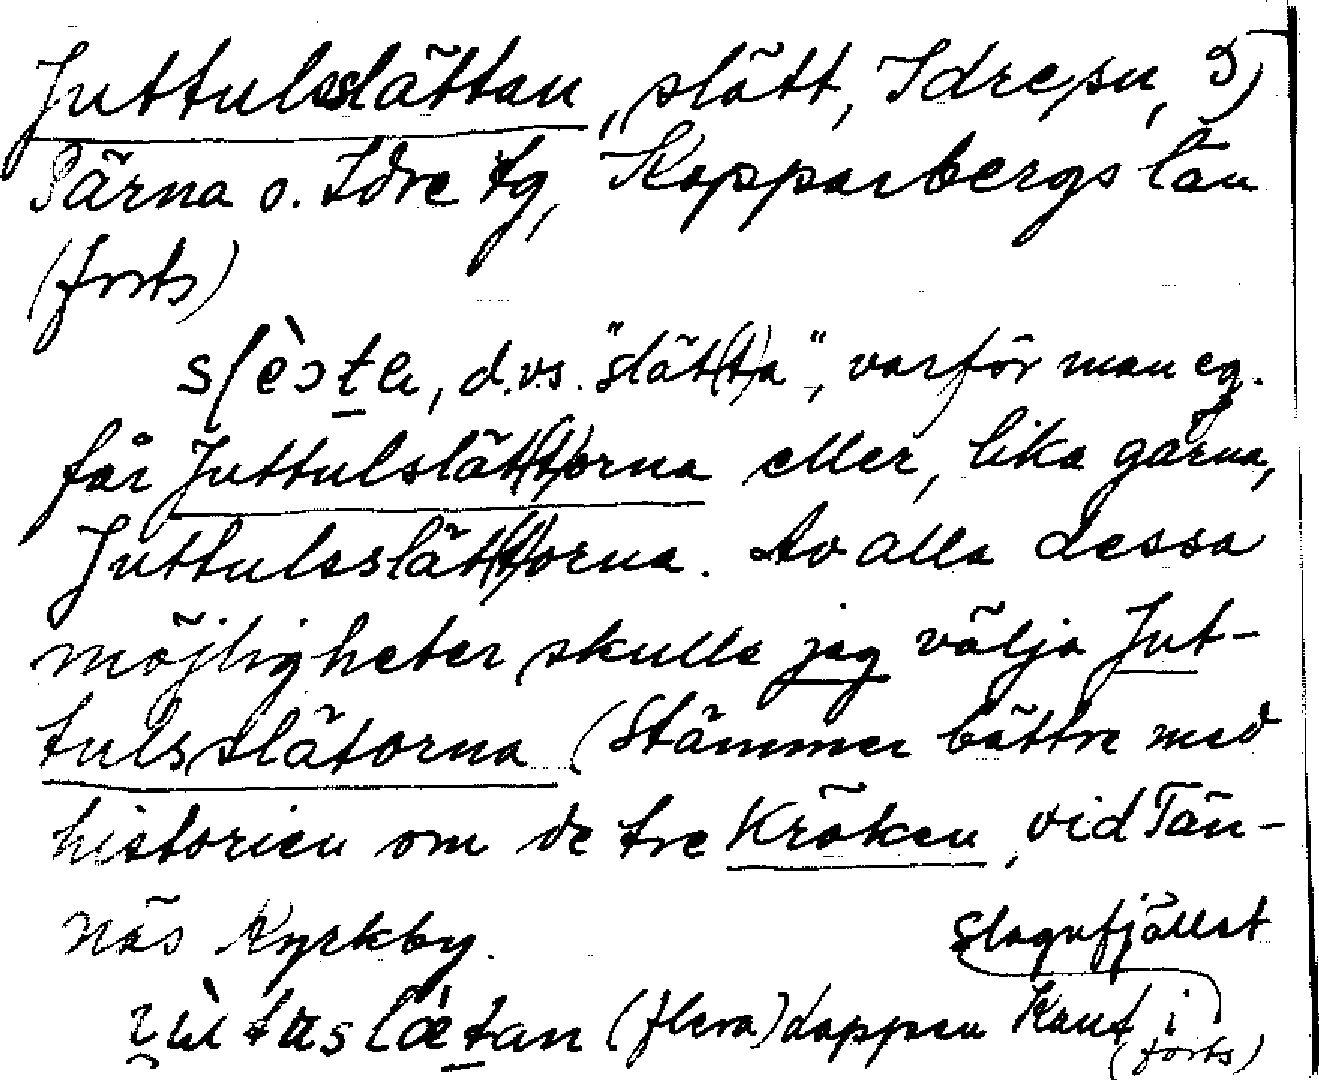 Juttulsslättan, slätt, Idre sn, 5)
Särna o. Idre tg, Kopparbergs län
(forts)
d.v.s. "slät(t)a", varför man eg.
får Juttulslät(t)orna eller, lika gärna,
Juttulsslät(t)orna. Av alla dessa
möjligheter skulle jag välja Jut-
tulsslätorna (Stämmer bättre med
historien om de tre Kröken, vid Tän-
näs Kyrkby.
Slagufjället
(flera) Knut i
(forts)